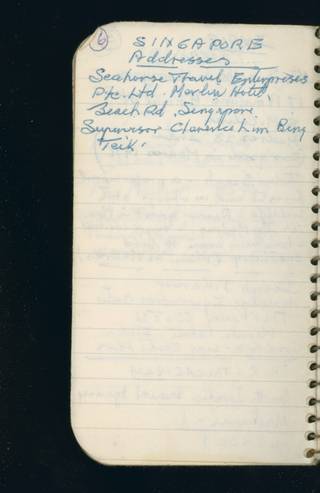 6
SINGAPORE
Addresses
Seahorse Travel Enterprises
Pte. Ltd. Merlin Hotel,
Beach Rd, Singapore
Supervisor Clarence Lim Bing
Teik.